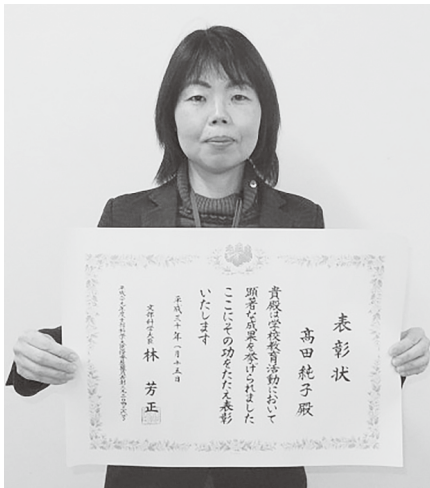 表彰状
高田純子殿
貴殿は学校教育活動において
顕著な成果を挙げられました
ここにその功をたたえ表彰
いたします
平成三十年一月十五日
文部科学大臣 林芳正